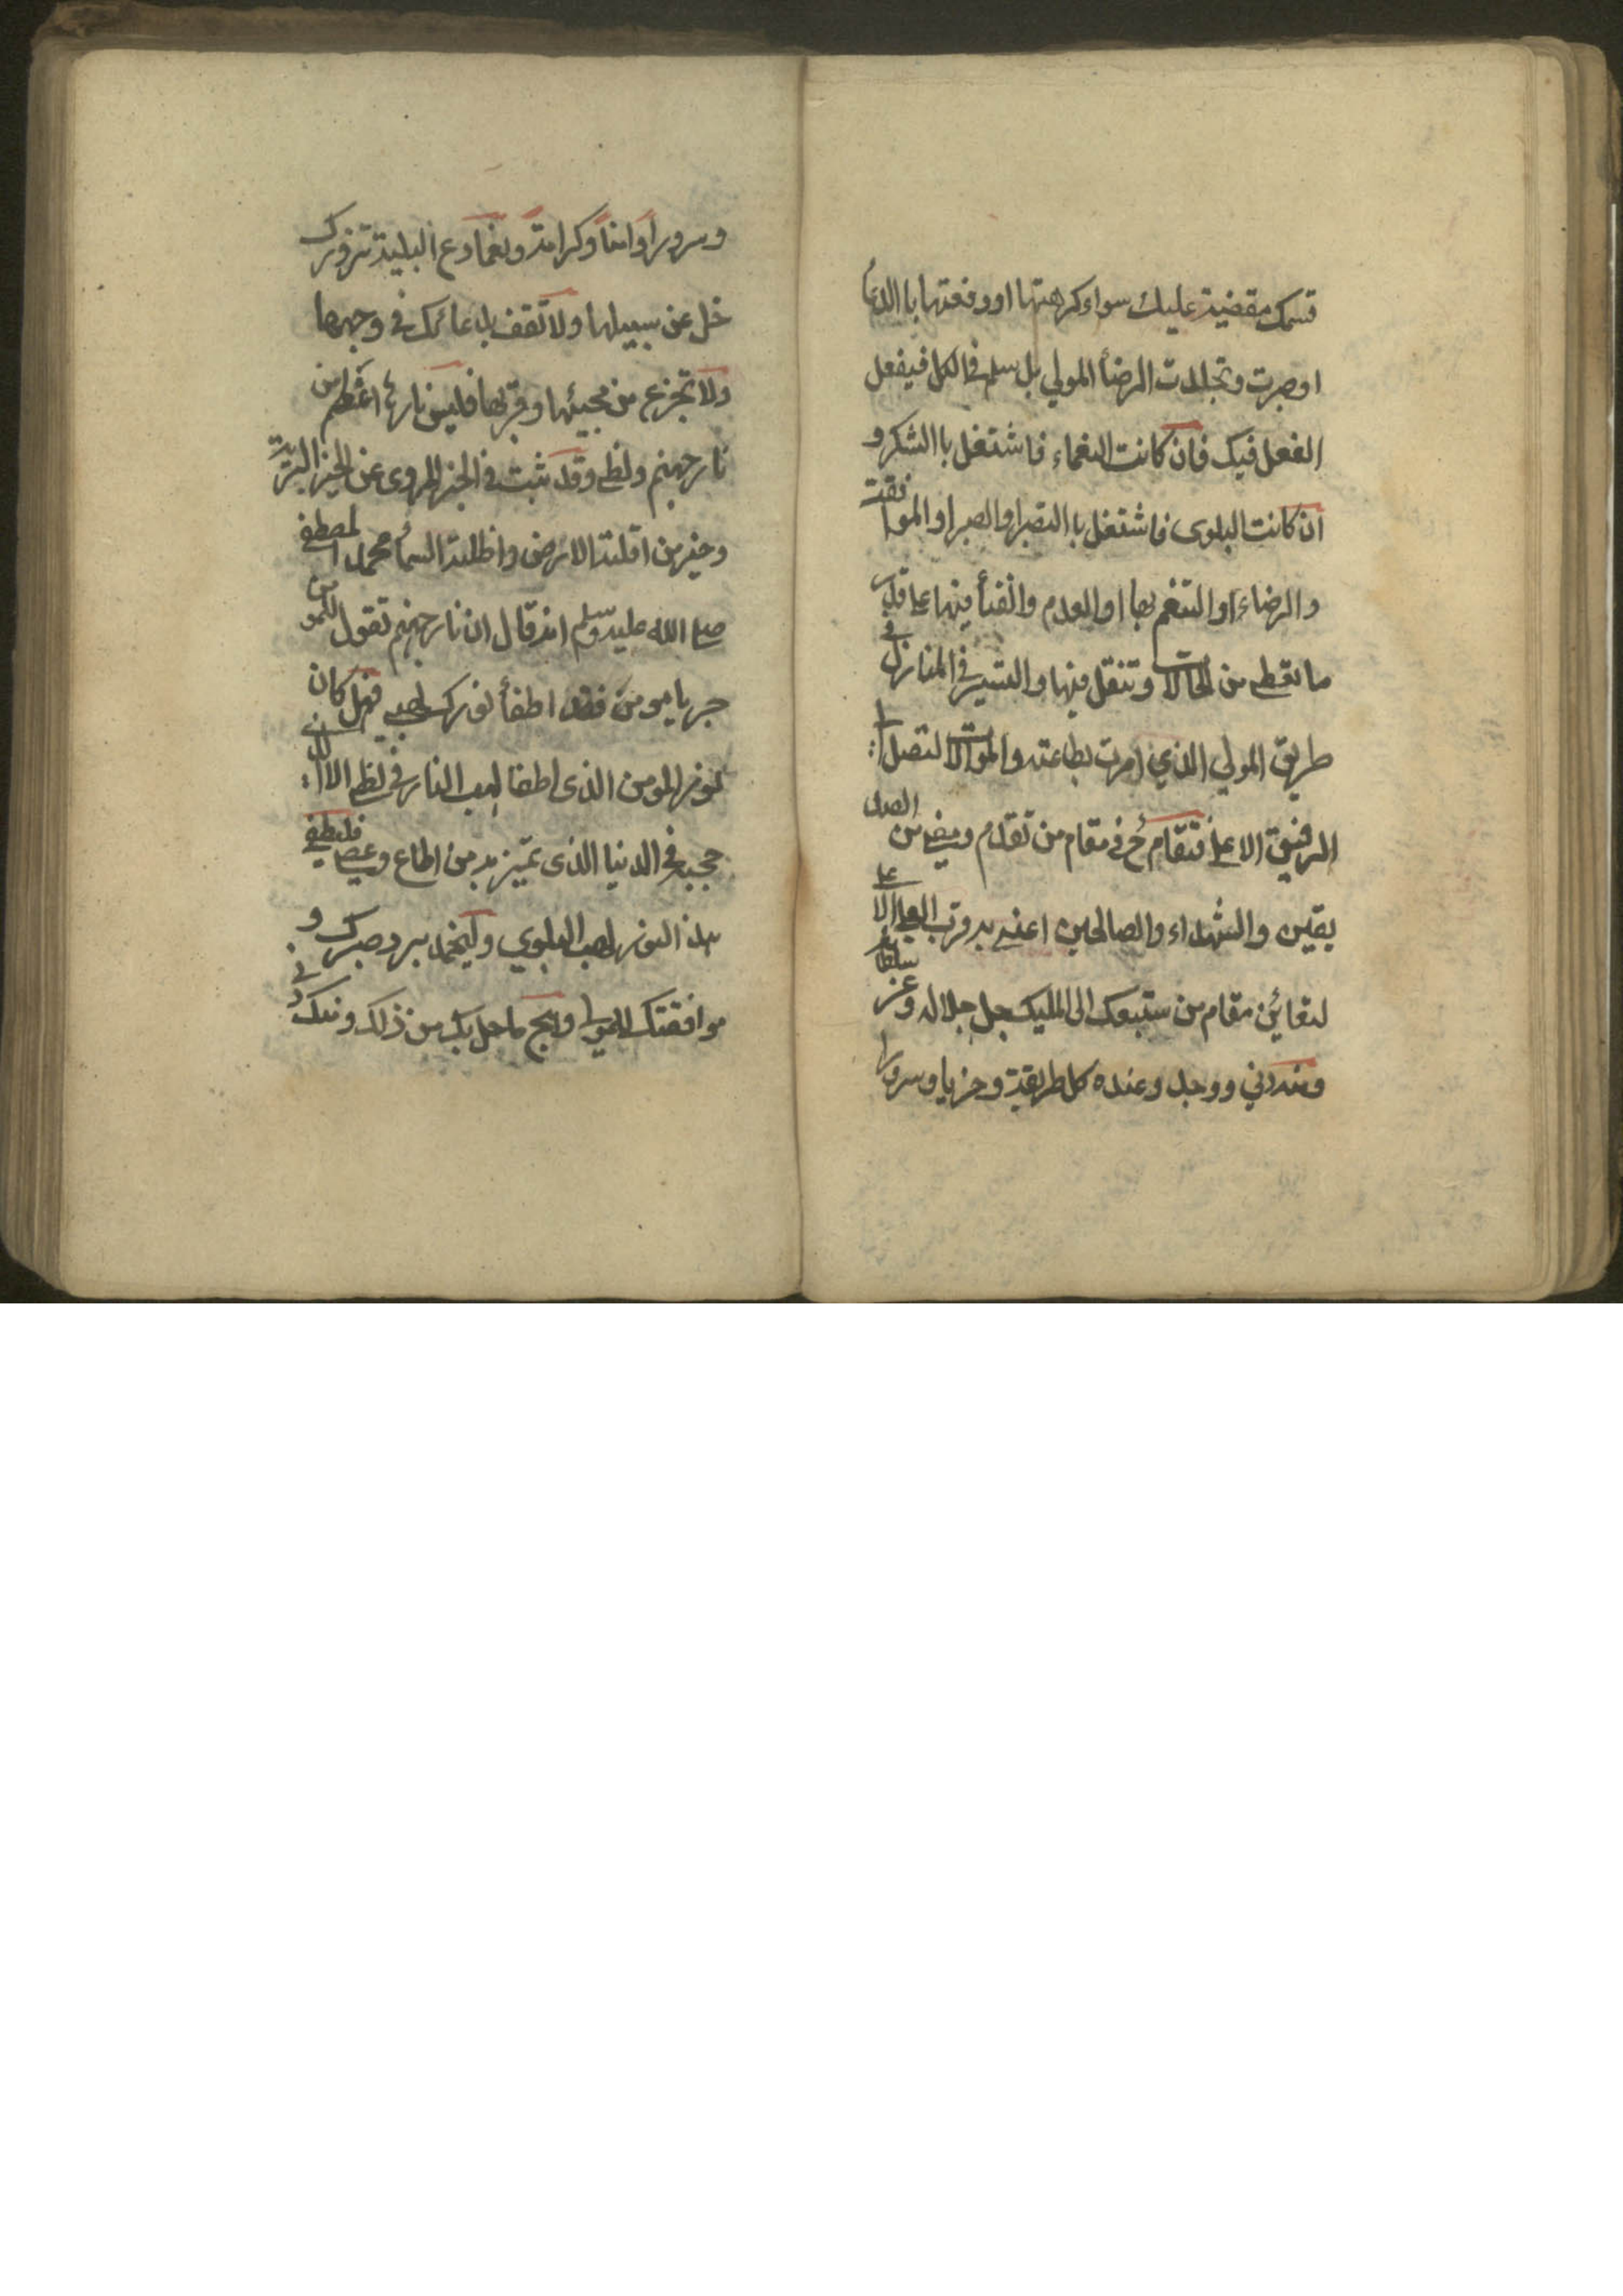 قسمك مقضية عليك سواء كرهتها او دفعتها باالدعأ
او صبرت وتجلدت الرضأ المولي بل سلم في الكل فيفعل
الفعل فيك فان كانت النعماء فاشتغل باالشكر و
ان كانت البلوى فاشتغل باالتصبر او الصبر او الموافقت
والرضاء او التنعم بها او العدم والفنأ فيها على قدر
ما تعطى من الحالات وتنقل فيها والتسير في المنازل في
طريق المولي الذي امرت بطاعته والموالات لتصل ا
الرفيق الاعلى فتقام ح في مقام من تقدم ومضى من الصد
يقين والشهداء والصالحين اعني به قرب العلي الاعلى
لتعاين مقام من سبقوك الى المليك جل جلاله وعز سلطانه
ومنه دني ووجد وعنده كل طريقة و خزيا وسرورا
وسرورا وامنا وكرامة ونعما دع البلية تزورك
خل عن سبيلها ولا تقف بدعائك في وجهها
ولا تجزع من مجيئها وقربها فليس نارها اعظم من
نار جهنم ولظى وقد ثبت في الخبر المروى عن الخير البرية
وخير من اقلته الارض واظلته السمأ محمد المصطفى
صلى الله عليه وسلم انه قال ان نار جهنم تقول للمومن
جز يا مومن فقد اطفأ نورك لهبي فهل كان
نور المومن الذى اطفا لهب النار في لظى الا الذي
صحبه في الدنيا الذى تميز به من اطاع وعصى فليطفي
هذ النور لهب البلوي وليخمد برد صبرك و
موافقتك للمولى وهج ما حل بك من ذلك ومنك دني